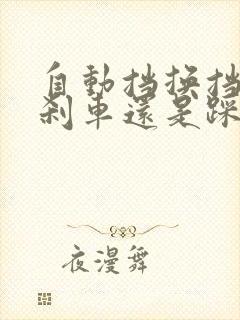 自動挡換挡
剎車還是踩
夜漫舞